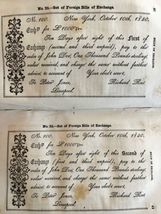 No. 35.—Set of Foreign Bills of Exchange.
No. 100. New York, October 10th, 1820.
Exch'ge for £1000
Ten Days after sight of this First of
Exchange (second and third unpaid), pay to the
order of John Doe, One Thousand Pounds sterling,
value received, and charge the same without further
advice, to account of Your obd't serv't,
To Peter Jones, Richard Roe.
Liverpool.
No. 36.—Set of Foreign Bills of Exchange.
No. 100. New York, October 10th, 1820.
Exch'ge for £1000
Ten Days after sight of this Second of
Exchange (first and third unpaid), pay to the
order of John Doe, One Thousand Pounds sterling,
value received, and charge the same without further
advice, to account of Your obd't serv't,
To Peter Jones, Richard Roe.
Liverpool.